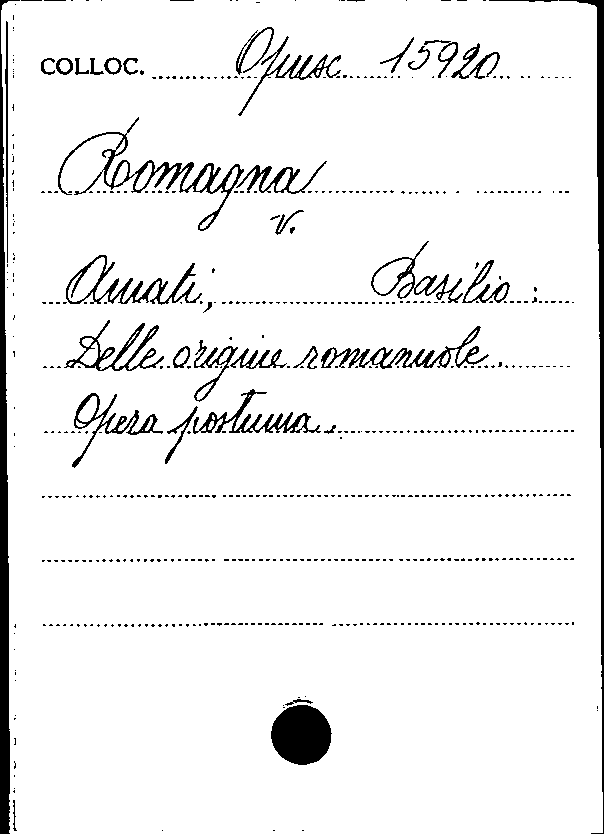 COLLOC. Opusc 15920
Romagna
v.
Amati, Basilio:
Delle origini romanuole.
Opera postuma.